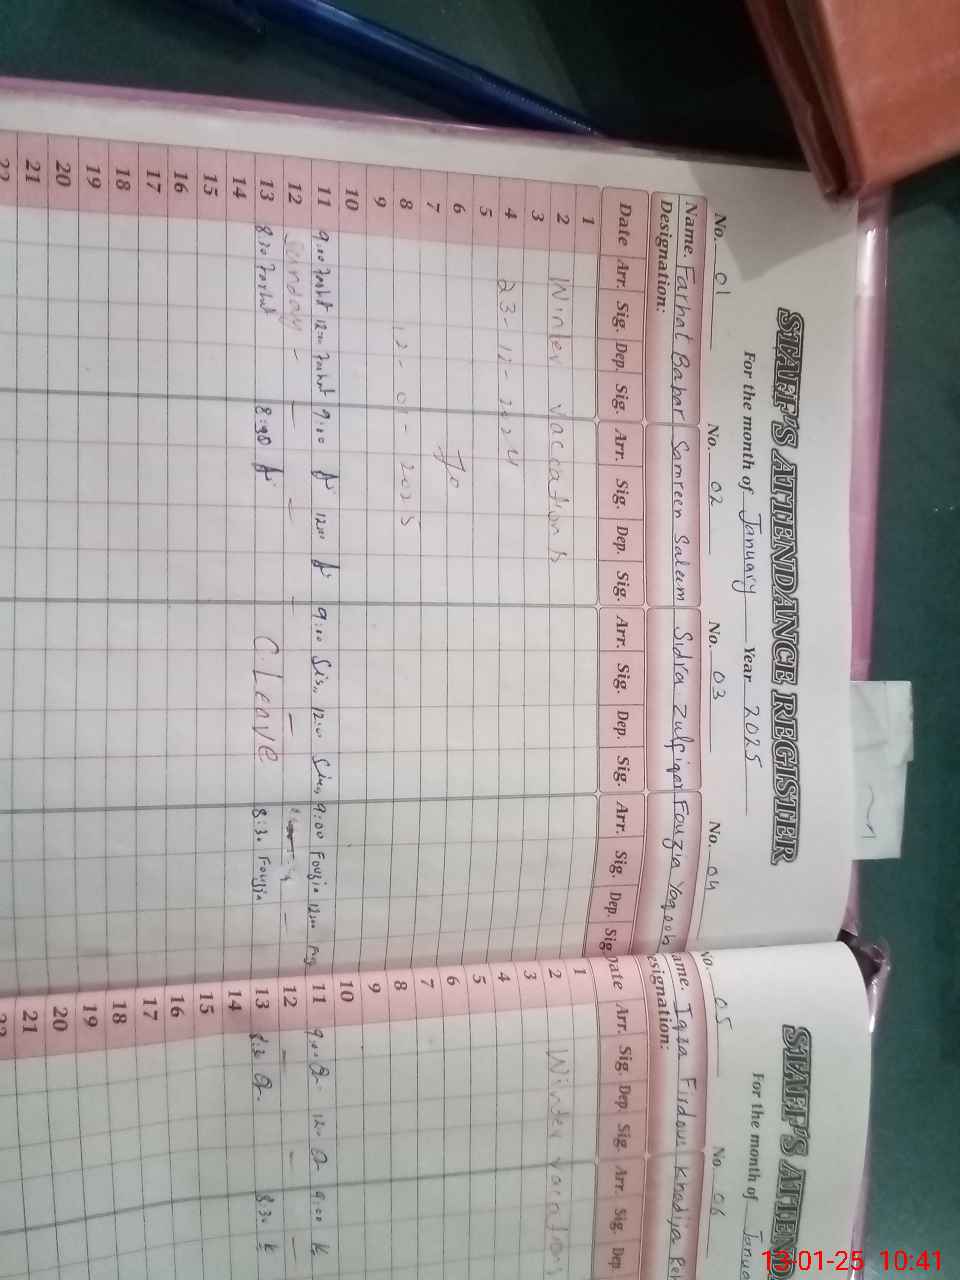 STAFF'S ATTENDANCE REGISTER
For the month of January Year 2025
No. 01 No. 02 No. 03 No. 04
Name. Farhat Babar Samreen Saleem Sidra Zulfiqar Fouzia Yaqoob
Designation:
Date Arr. Sig. Dep. Sig. Arr. Sig. Dep. Sig. Arr. Sig. Dep. Sig. Arr. Sig. Dep. Sig
1
2 Winter Vaccation
3
4 23-12-2024
5
6 To
7
8 12-01-2025
9
10
11 9:00 Farhat 12:00 Farhat 9:00 12:00 9:00 12:00 9:00 Fouzia 12:00
12 Sunday - - - - -
13 8:30 Farhat 8:30 C.Leave 8:30 Fouzia
14
15
16
17
18
19
20
21
22
STAFF'S ATTEND
For the month of Janua
No. 05 No 06
ame. Iqra Firdous Khadija Reh
esignation:
ate Arr. Sig. Dep. Sig. Arr. Sig. Dep
1
2 Winter vacation
3
4
5
6
7
8
9
10
11 9:00 12:00 9:00 K
12 - - -
13 8:30 8:30 K
14
15
16
17
18
19
20
21
22
13-01-25 10:41